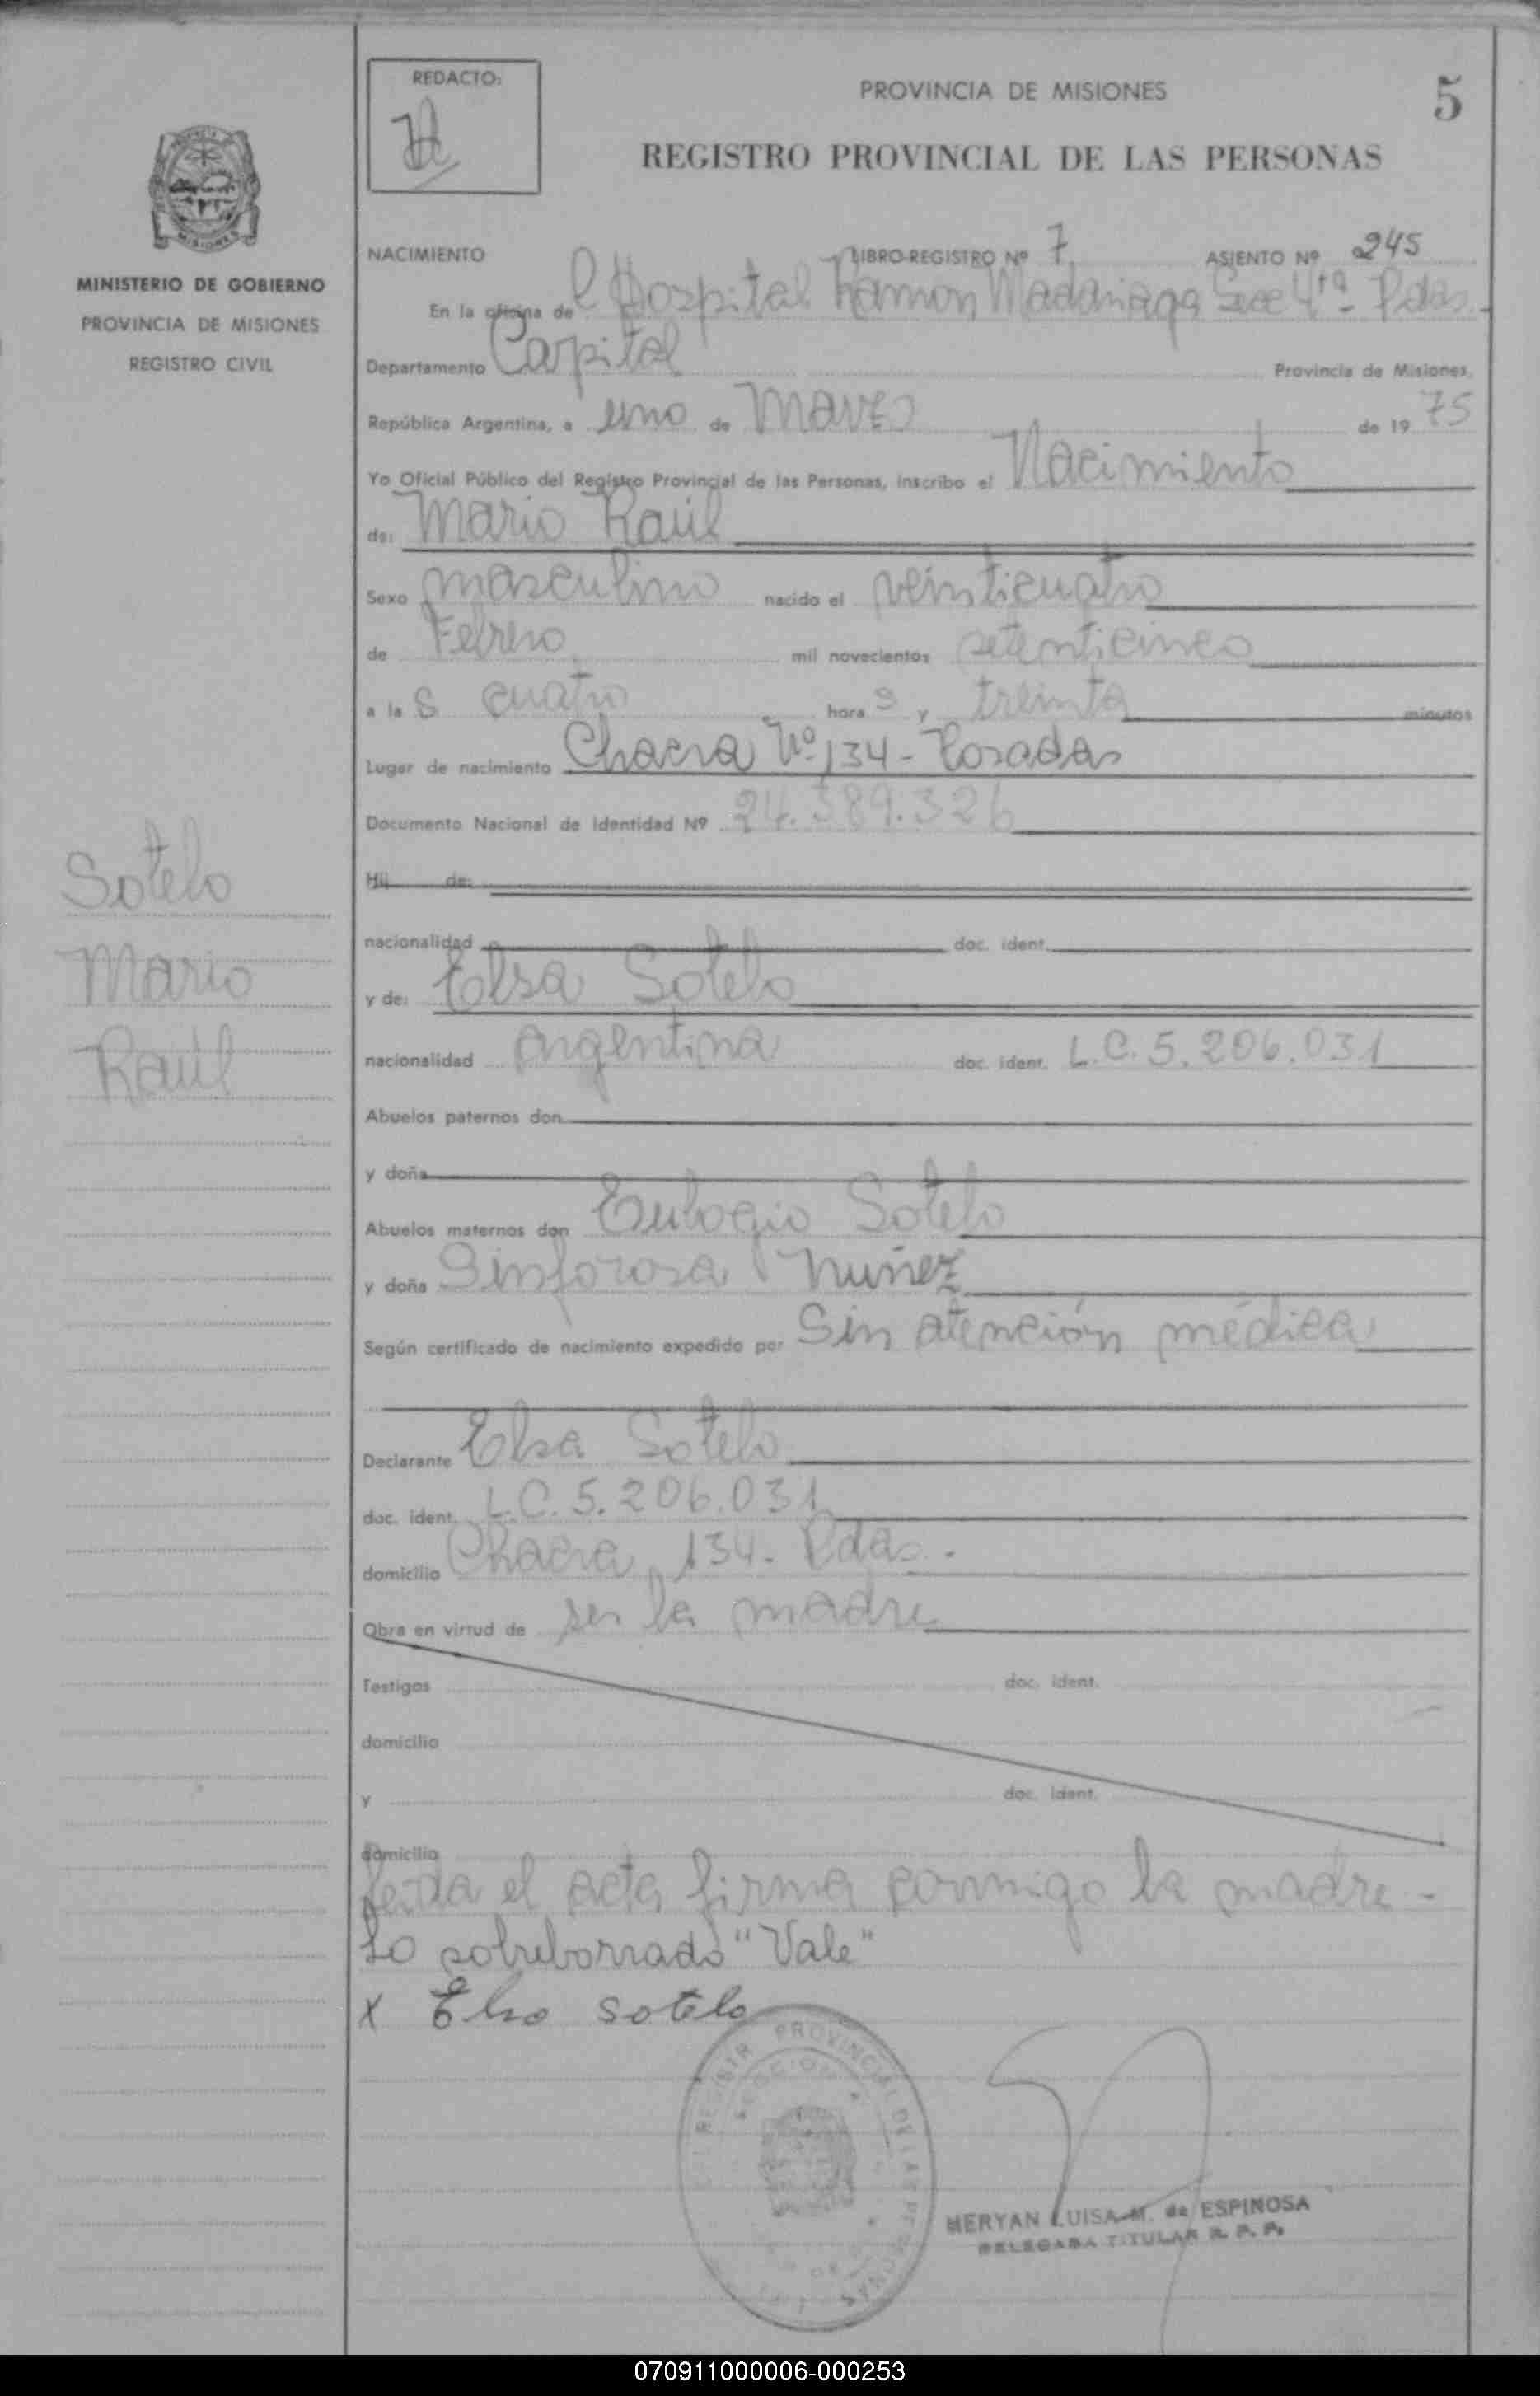 REDACTO:
PROVINCIA DE MISIONES
5
REGISTRO PROVINCIAL DE LAS PERSONAS
MISIONES
MINISTERIO DE GOBIERNO
PROVINCIA DE MISIONES
REGISTRO CIVIL
NACIMIENTO LIBRO-REGISTRO Nº 7 ASIENTO Nº 245
En la oficina de l Hospital Ramon Madariaga Secc 4ta Pdas.
Departamento Capital Provincia de Misiones,
República Argentina, a uno de Marzo de 19 75
Yo Oficial Público del Registro Provincial de las Personas, inscribo el Nacimiento
de: Mario Raúl
Sexo masculino nacido el veinticuatro
de Febrero mil novecientos setenticinco
a la s cuatro hora s y treinta minutos
Lugar de nacimiento Chacra Nº 134 - Posadas
Documento Nacional de Identidad Nº 24.389.326
Hij de:
nacionalidad doc. ident.
y de: Elsa Sotelo
nacionalidad argentina doc. ident. L.C. 5.206.031
Abuelos paternos don
y doña
Abuelos maternos don Eulogio Sotelo
y doña Sinforosa Nuñez
Según certificado de nacimiento expedido por Sin atención médica
Declarante Elsa Sotelo
doc. ident. L.C. 5.206.031
domicilio Chacra 134. Pdas.
Obra en virtud de ser la madre
Testigos doc. ident.
domicilio
y doc. ident.
domicilio
Leida el acta firma conmigo la madre -
Lo sobreborrado "Vale"
x Elsa sotelo
Sotelo
Mario
Raúl
REGISTR PROVINCIAL DE LAS PERSONAS
SECCION
MERYAN LUISA M. de ESPINOSA
DELEGADA TITULAR R. P. P.
070911000006-000253